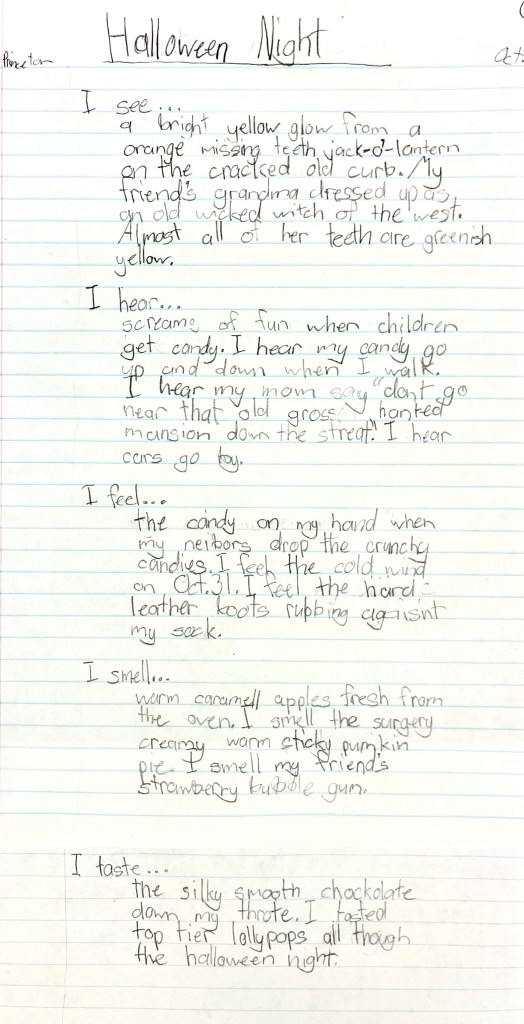 Halloween Night
Princeton
Oct.
I see...
a bright yellow glow from a
orange missing teeth jack-o'-lantern
on the cracked old curb. My
friend's grandma dressed up as
an old wicked witch of the west.
Almost all of her teeth are greenish
yellow.
I hear...
screams of fun when children
get candy. I hear my candy go
up and down when I walk.
I hear my mom say "dont go
near that old gross hanted
mansion down the streat." I hear
cars go by.
I feel...
the candy on my hand when
my neibors drop the crunchy
candies. I feel the cold wind
on Oct.31. I feel the hard
leather boots rubbing agaisnt
my sock.
I smell...
warm caramell apples fresh from
the oven. I smell the surgery
creamy warm sticky pumkin
pie. I smell my friend's
strawberry bubble gum.
I taste...
the silky smooth chockolate
down my throte. I tasted
top tier lollypops all though
the halloween night.